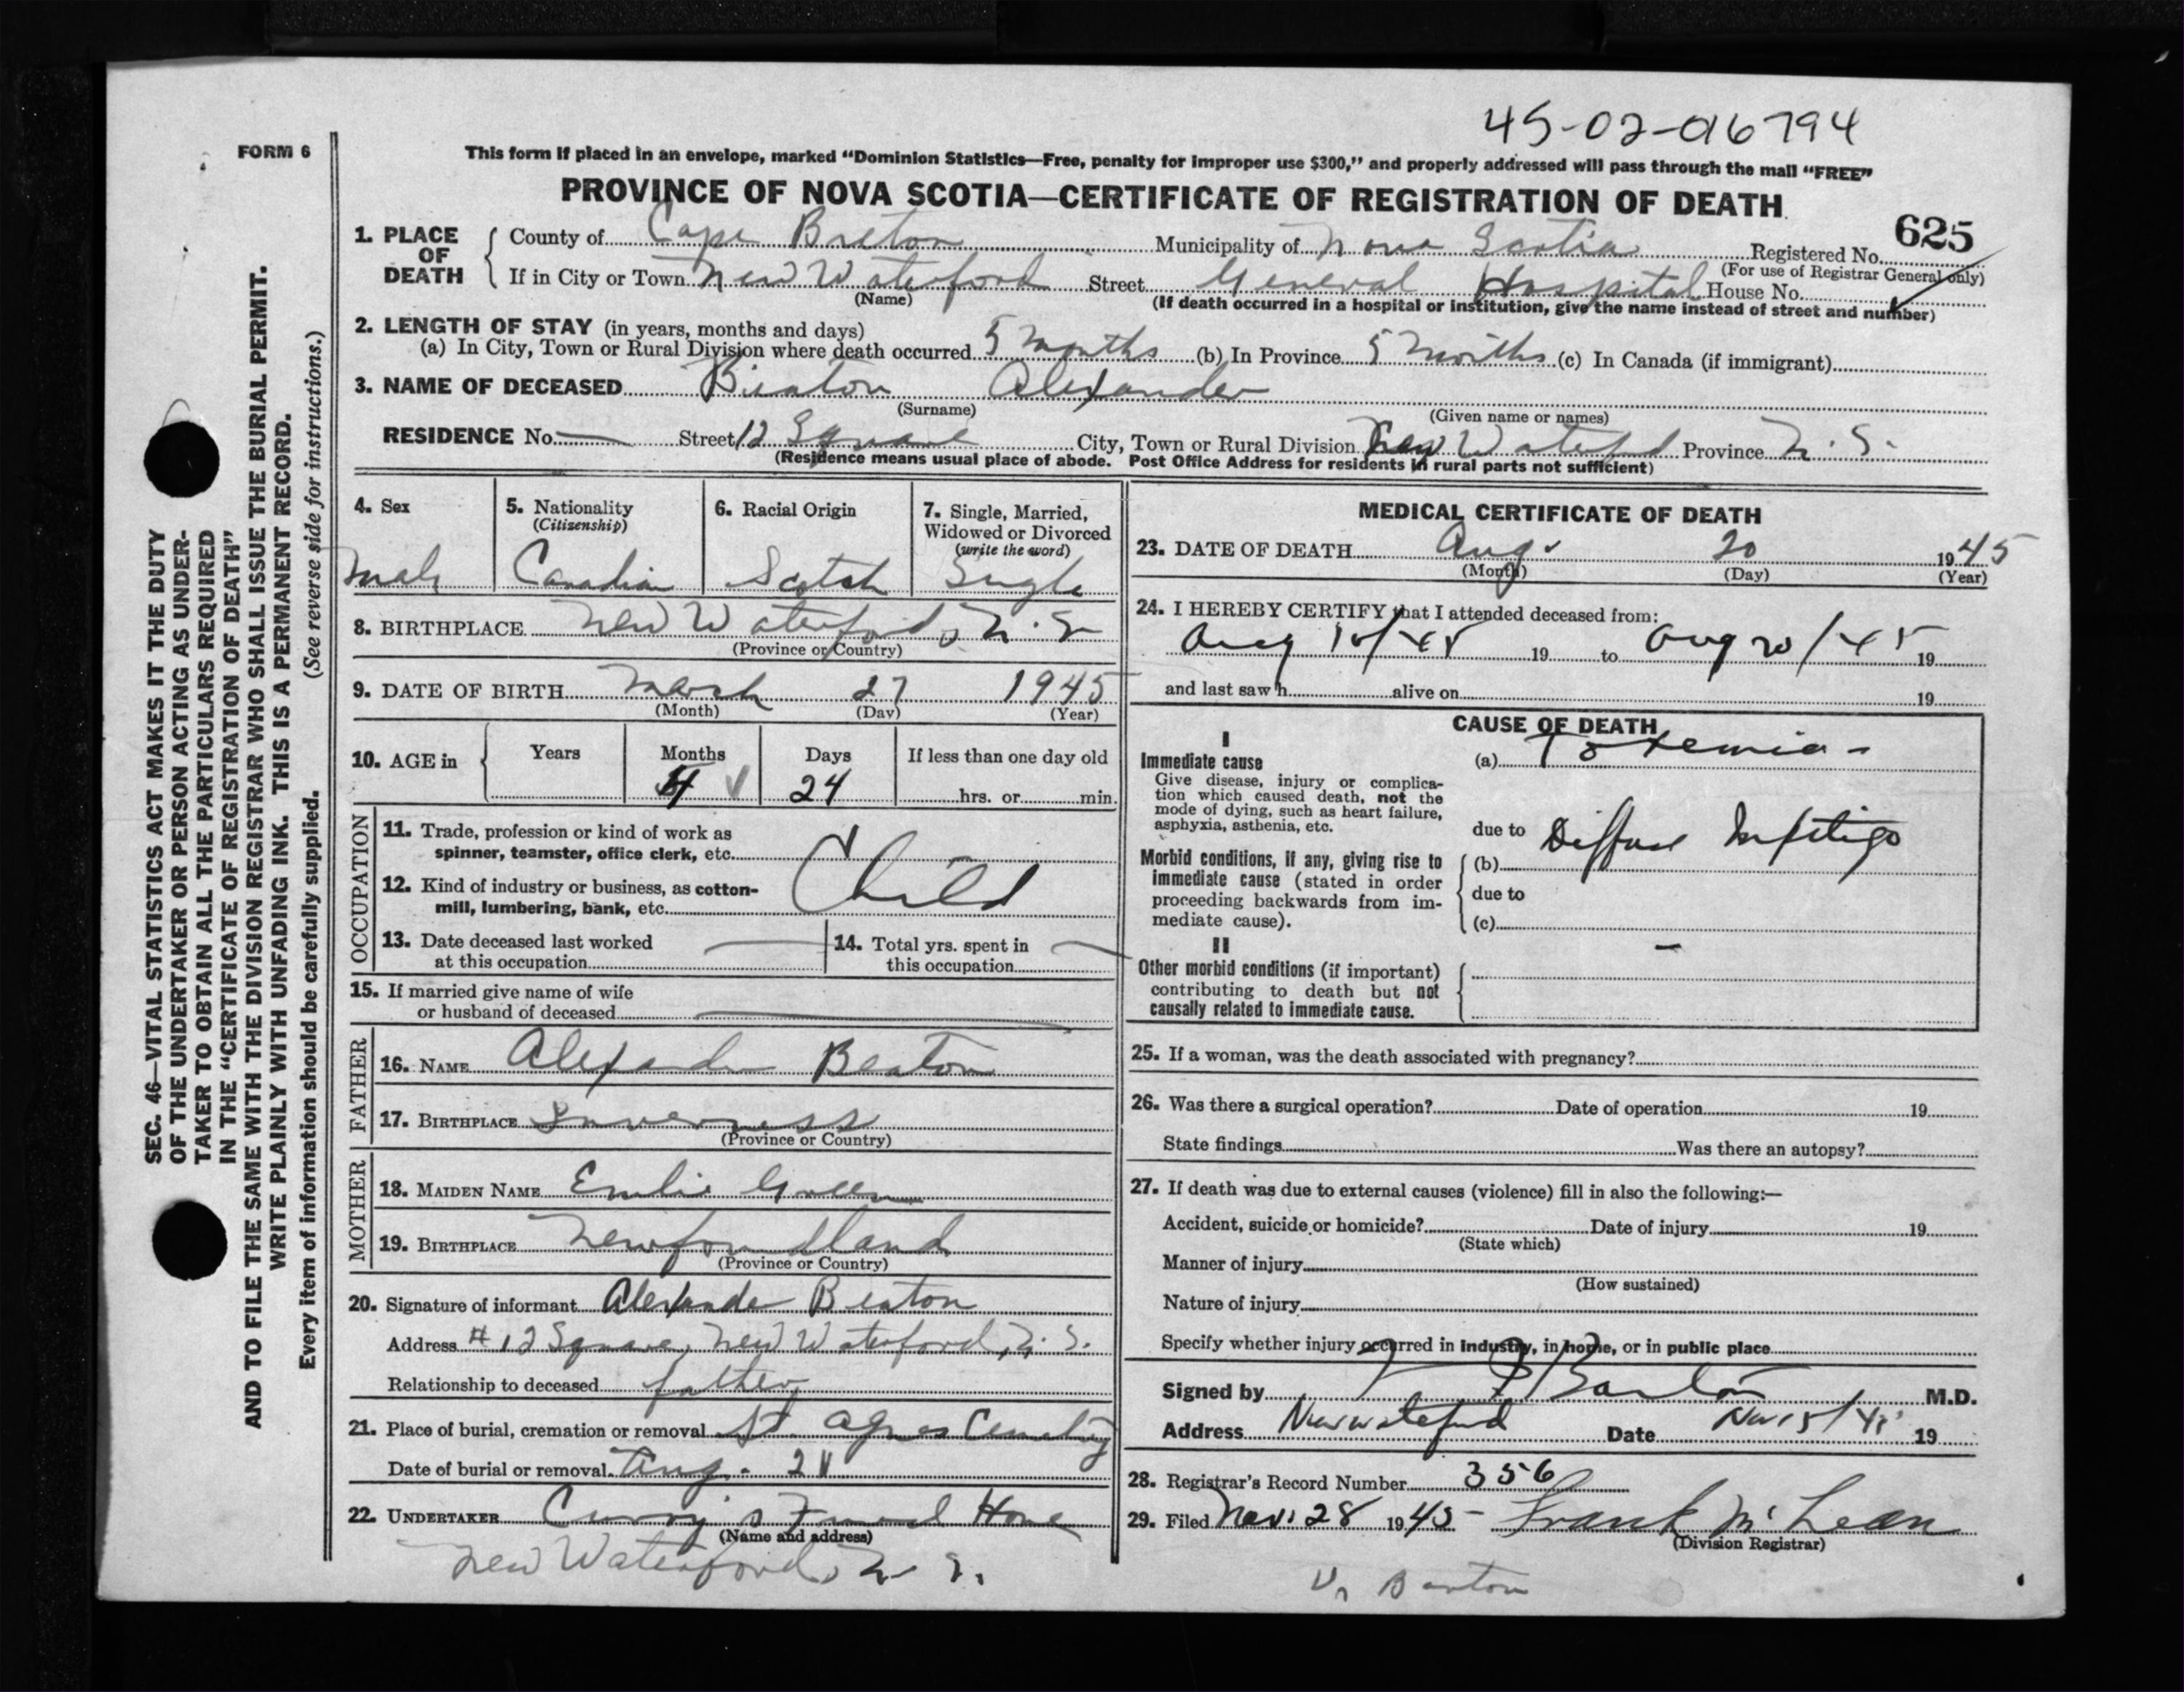 45-02-016794
FORM 6
This form if placed in an envelope, marked “Dominion Statistics—Free, penalty for improper use $300,” and properly addressed will pass through the mail “FREE”
PROVINCE OF NOVA SCOTIA—CERTIFICATE OF REGISTRATION OF DEATH
1. PLACE OF DEATH County of Cape Breton Municipality of Nova Scotia Registered No. 625
(For use of Registrar General only)
If in City or Town New Waterford Street General Hospital House No.
(Name) (If death occurred in a hospital or institution, give the name instead of street and number)
2. LENGTH OF STAY (in years, months and days)
(a) In City, Town or Rural Division where death occurred 5 months (b) In Province 5 months (c) In Canada (if immigrant)
3. NAME OF DECEASED Beaton Alexander
(Surname) (Given name or names)
RESIDENCE No. — Street 12 Square City, Town or Rural Division New Waterford Province N.S.
(Residence means usual place of abode. Post Office Address for residents in rural parts not sufficient)
4. Sex
Male
5. Nationality
(Citizenship)
Canadian
6. Racial Origin
Scotch
7. Single, Married,
Widowed or Divorced
(write the word)
Single
8. BIRTHPLACE New Waterford, N.S.
(Province or Country)
9. DATE OF BIRTH March 27 1945
(Month) (Day) (Year)
10. AGE in Years Months Days If less than one day old
4 24 hrs. or min.
OCCUPATION
11. Trade, profession or kind of work as
spinner, teamster, office clerk, etc.
Child
12. Kind of industry or business, as cotton-
mill, lumbering, bank, etc.
13. Date deceased last worked
at this occupation
14. Total yrs. spent in
this occupation
15. If married give name of wife
or husband of deceased
FATHER
16. NAME Alexander Beaton
17. BIRTHPLACE Inverness
(Province or Country)
MOTHER
18. MAIDEN NAME Emlie Green
19. BIRTHPLACE Newfoundland
(Province or Country)
20. Signature of informant Alexander Beaton
Address #12 Square, New Waterford, N.S.
Relationship to deceased father
21. Place of burial, cremation or removal St. Agnes Cemetery
Date of burial or removal Aug. 21
22. UNDERTAKER Curry's Funeral Home
(Name and address)
New Waterford, N.S.
MEDICAL CERTIFICATE OF DEATH
23. DATE OF DEATH Aug. 20 1945
(Month) (Day) (Year)
24. I HEREBY CERTIFY that I attended deceased from:
Aug 19 to Aug 20/45 19
and last saw h alive on 19
CAUSE OF DEATH
I
Immediate cause
Give disease, injury or complica-
tion which caused death, not the
mode of dying, such as heart failure,
asphyxia, asthenia, etc.
(a) Toxemia -
due to
Morbid conditions, if any, giving rise to
immediate cause (stated in order
proceeding backwards from im-
mediate cause).
(b) Diffuse Impetigo
due to
(c)
II
Other morbid conditions (if important)
contributing to death but not
causally related to immediate cause.
25. If a woman, was the death associated with pregnancy?
26. Was there a surgical operation? Date of operation 19
State findings Was there an autopsy?
27. If death was due to external causes (violence) fill in also the following:—
Accident, suicide or homicide? Date of injury 19
(State which)
Manner of injury
(How sustained)
Nature of injury
Specify whether injury occurred in industry, in home, or in public place
Signed by Barton M.D.
Address New Waterford Date Nov 15/45 19
28. Registrar's Record Number 356
29. Filed Nov. 28 1945 - Frank McLean
(Division Registrar)
Barton
SEC. 46—VITAL STATISTICS ACT MAKES IT THE DUTY
OF THE UNDERTAKER OR PERSON ACTING AS UNDER-
TAKER TO OBTAIN ALL THE PARTICULARS REQUIRED
IN THE “CERTIFICATE OF REGISTRATION OF DEATH”
AND TO FILE THE SAME WITH THE DIVISION REGISTRAR WHO SHALL ISSUE THE BURIAL PERMIT.
WRITE PLAINLY WITH UNFADING INK. THIS IS A PERMANENT RECORD.
Every item of information should be carefully supplied. (See reverse side for instructions.)